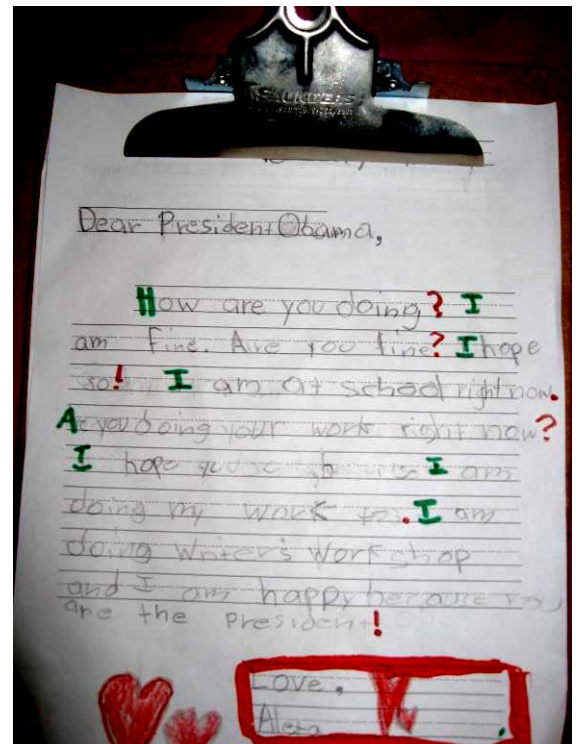 SAUNDERS
Dear President Obama,
How are you doing? I
am fine. Are you fine? I hope
so! I am at school right now.
Are you doing your work right now?
I hope you're I am
doing my work too. I am
doing writer's workshop
and I am happy because you
are the president!
Love,
Aleta